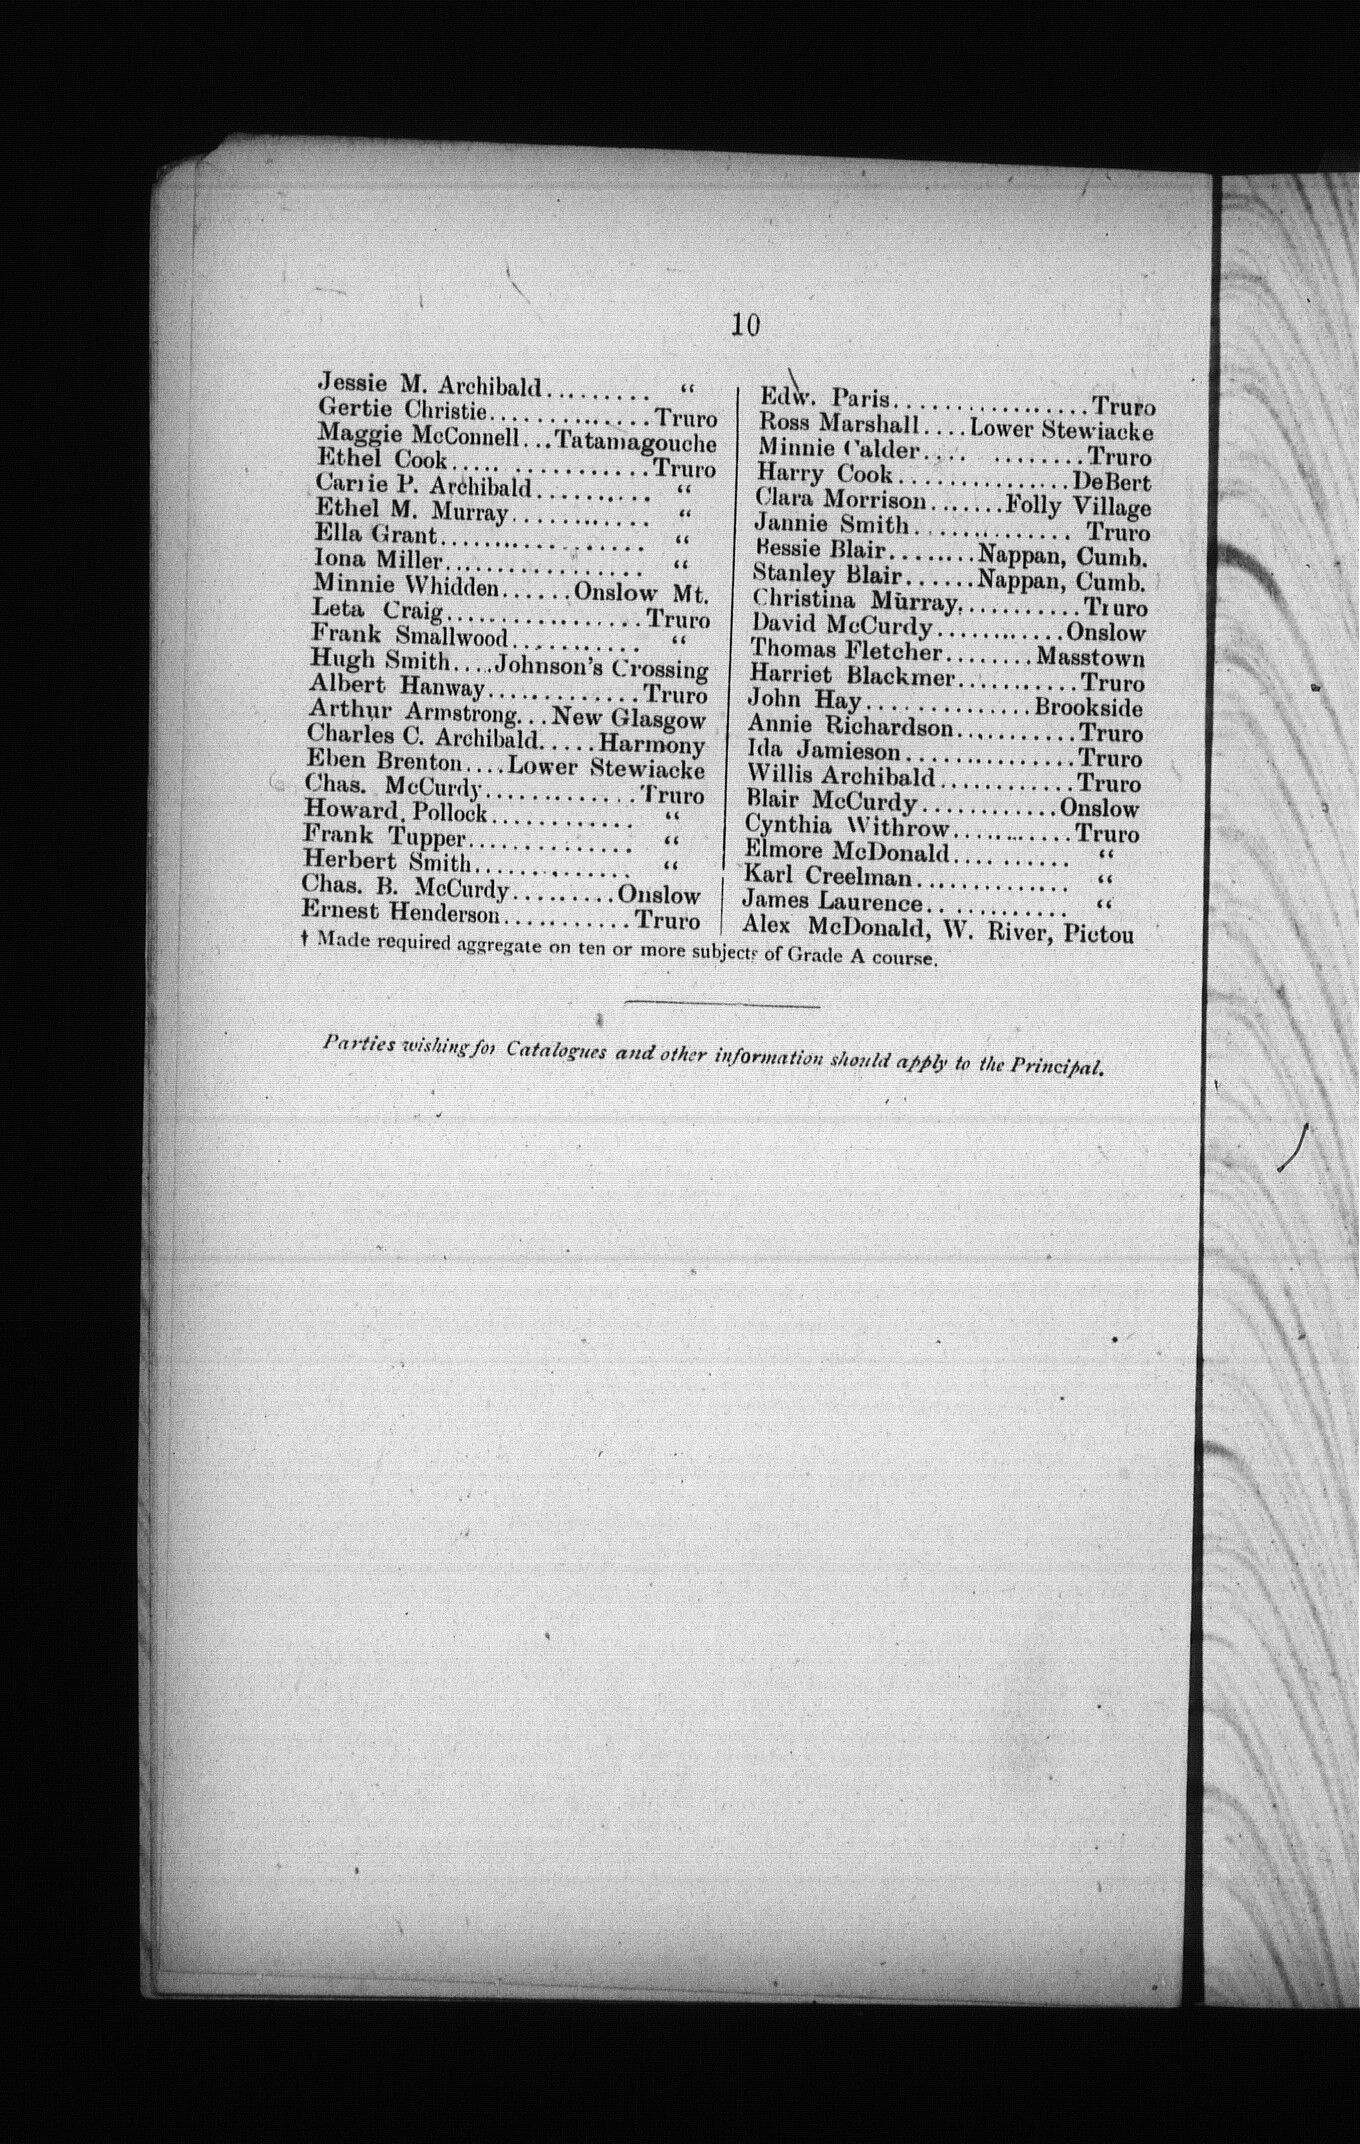 10
Jessie M. Archibald.......... “
Gertie Christie..............Truro
Maggie McConnell...Tatamagouche
Ethel Cook..... ............Truro
Carrie P. Archibald.......... “
Ethel M. Murray........... “
Ella Grant.................. “
Iona Miller................. “
Minnie Whidden......Onslow Mt.
Leta Craig.................Truro
Frank Smallwood........... “
Hugh Smith....Johnson's Crossing
Albert Hanway.............Truro
Arthur Armstrong...New Glasgow
Charles C. Archibald.....Harmony
Eben Brenton....Lower Stewiacke
Chas. McCurdy.............Truro
Howard. Pollock............ “
Frank Tupper.............. “
Herbert Smith............. “
Chas. B. McCurdy.........Onslow
Ernest Henderson...........Truro
Edw. Paris.................Truro
Ross Marshall....Lower Stewiacke
Minnie Calder.... ........Truro
Harry Cook...............DeBert
Clara Morrison.......Folly Village
Jannie Smith.............. Truro
Bessie Blair........Nappan, Cumb.
Stanley Blair......Nappan, Cumb.
Christina Murray...........Truro
David McCurdy............Onslow
Thomas Fletcher........Masstown
Harriet Blackmer...........Truro
John Hay...............Brookside
Annie Richardson...........Truro
Ida Jamieson...............Truro
Willis Archibald............Truro
Blair McCurdy............Onslow
Cynthia Withrow...........Truro
Elmore McDonald.......... “
Karl Creelman.............. “
James Laurence............. “
Alex McDonald, W. River, Pictou
† Made required aggregate on ten or more subjects of Grade A course.
Parties wishing for Catalogues and other information should apply to the Principal.